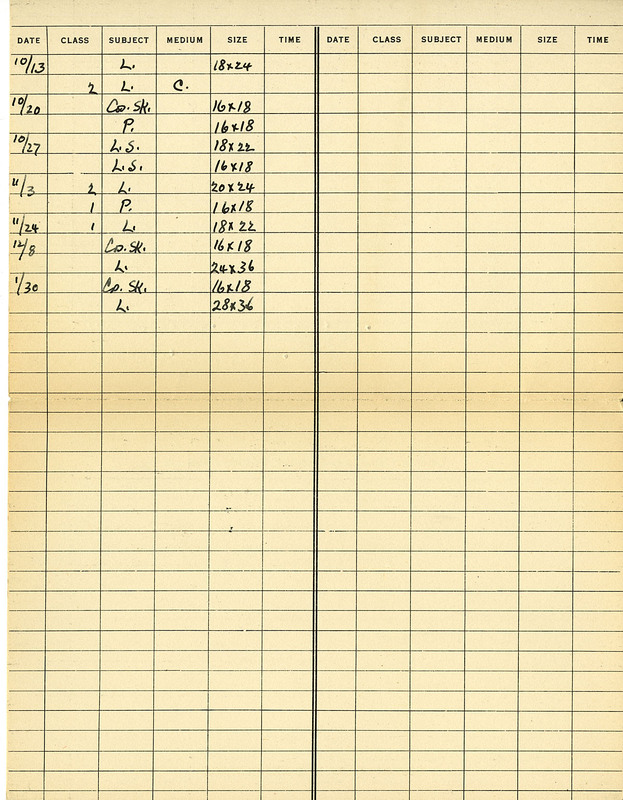 DATE CLASS SUBJECT MEDIUM SIZE TIME DATE CLASS SUBJECT MEDIUM SIZE TIME
10/13 L. 18x24
2 L. C.
10/20 Co. Sk. 16x18
P. 16x18
10/27 L.S. 18x22
L.S. 16x18
11/3 2 L. 20x24
1 P. 16x18
11/24 1 L. 18x22
12/8 Co. Sk. 16x18
L. 24x36
1/30 Co. Sk. 16x18
L. 28x36